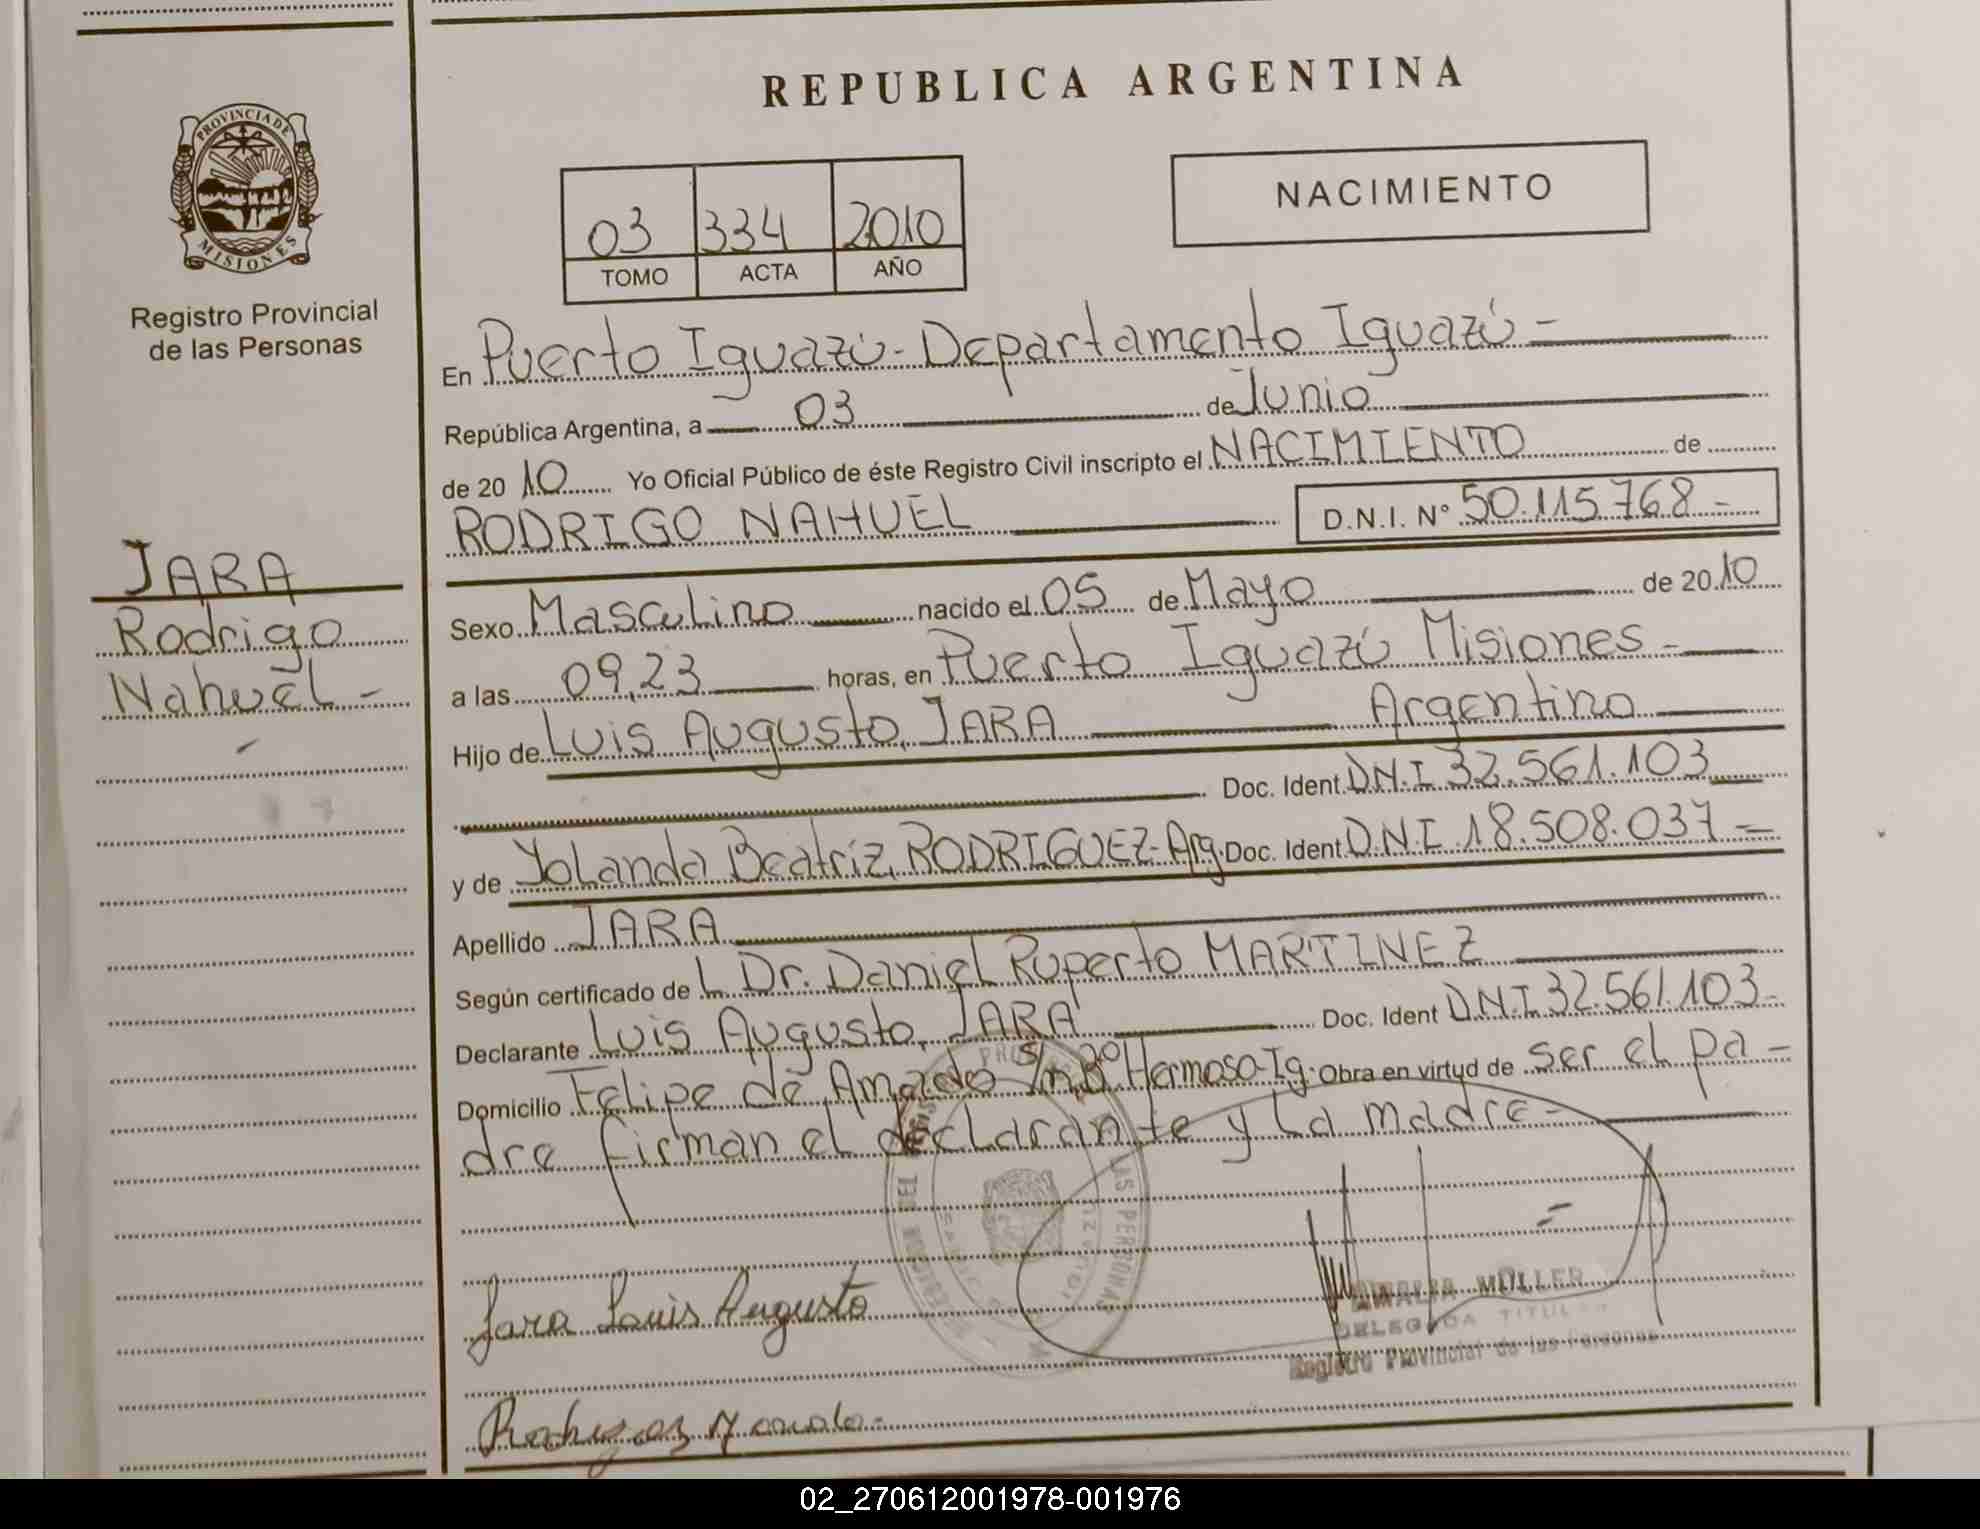 REPUBLICA ARGENTINA
PROVINCIA DE
MISIONES
Registro Provincial
de las Personas
JARA
Rodrigo
Nahuel -
03 334 2010
TOMO ACTA AÑO
NACIMIENTO
En Puerto Iguazú - Departamento Iguazú -
República Argentina, a 03 de Junio
de 20 10 Yo Oficial Público de éste Registro Civil inscripto el NACIMIENTO de
RODRIGO NAHUEL D.N.I. N° 50.115.768 -
Sexo Masculino nacido el 05 de Mayo de 20 10
a las 09,23 horas, en Puerto Iguazú Misiones -
Hijo de Luis Augusto, JARA Argentino
Doc. Ident. D.N.I 32.561.103
y de Yolanda Beatríz, RODRIGUEZ - Arg. Doc. Ident D.N.I. 18.508.037 -
Apellido JARA
Según certificado de L Dr. Daniel Ruperto MARTINEZ
Declarante Luis Augusto, JARA Doc. Ident D.N.I 32.561.103 -
Domicilio Felipe de Amado s/n B° Hermoso - Ig. Obra en virtud de ser el pa -
dre firman el declarante y la madre -
Jara Luis Augusto
MULLER
DELEGADA TITULAR
Registro Provincial de las Personas
02_270612001978-001976